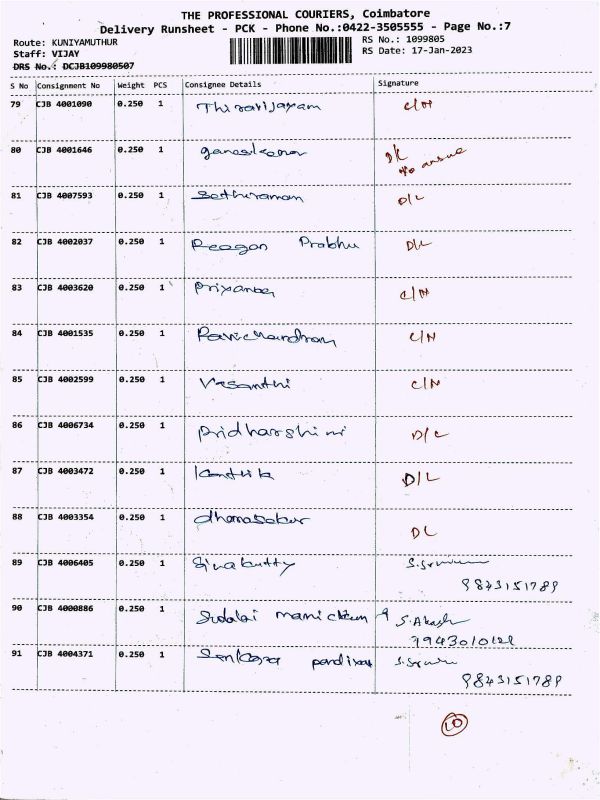 THE PROFESSIONAL COURIERS, Coimbatore
Delivery Runsheet - PCK - Phone No.:0422-3505555 - Page No.:7
Route: KUNIYAMUTHUR RS No.: 1099805
Staff: VIJAY RS Date: 17-Jan-2023
DRS No.: DCJB109980507
S No Consignment No Weight PCS Consignee Details Signature
79 CJB 4001090 0.250 1 C/N
80 CJB 4001646 0.250 1 D/L
81 CJB 4007593 0.250 1 Sathuraman D/L
82 CJB 4002037 0.250 1 Reagan Prabhu D/L
83 CJB 4003620 0.250 1 Priyanka C/N
84 CJB 4001535 0.250 1 Ravichandran C/N
85 CJB 4002599 0.250 1 Vasanthi C/N
86 CJB 4006734 0.250 1 Pridharshini D/L
87 CJB 4003472 0.250 1 Karthik D/L
88 CJB 4003354 0.250 1 dhanasekar DL
89 CJB 6006405 0.250 1 Sivakutty
9843151789
90 CJB 4000886 0.250 1 Sudalai manickam S. Akash
91 CJB 4004371 0.250 1 Sankara pandiyan
9843151789
10